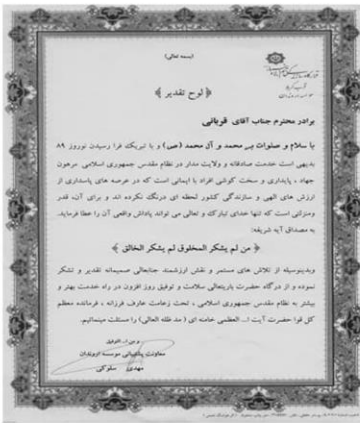 (بسمه تعالی)
لوح تقدیر
برادر محترم جناب آقای قربانی
با سلام و صلوات بر محمد و آل محمد (ص) و با تبریک فرا رسیدن نوروز ۸۹
بدیهی است خدمت صادقانه و ولایت مدار در نظام مقدس جمهوری اسلامی مرهون
جهاد ، پایداری و سخت کوشی افراد با ایمانی است که در عرصه های پاسداری از
ارزش های الهی و سازندگی کشور لحظه ای درنگ نکرده اند و برای آن، قدر
ومنزلتی است که تنها خدای تبارک و تعالی می تواند پاداش واقعی آن را عطا فرماید.
به مصداق آیه شریفه:
من لم یشکر المخلوق لم یشکر الخالق
وبدینوسیله از تلاش های مستمر و نقش ارزشمند جنابعالی صمیمانه تقدیر و تشکر
نموده و از درگاه حضرت باریتعالی سلامت و توفیق روز افزون در راه خدمت بهتر و
بیشتر به نظام مقدس جمهوری اسلامی ، تحت زعامت عارف فرزانه ، فرمانده معظم
کل قوا حضرت آیت ا... العظمی خامنه ای ( مد ظله العالی) را مسئلت مینمائیم.
و من ا... التوفیق
معاونت پشتیبانی موسسه
مهدی سلوکی